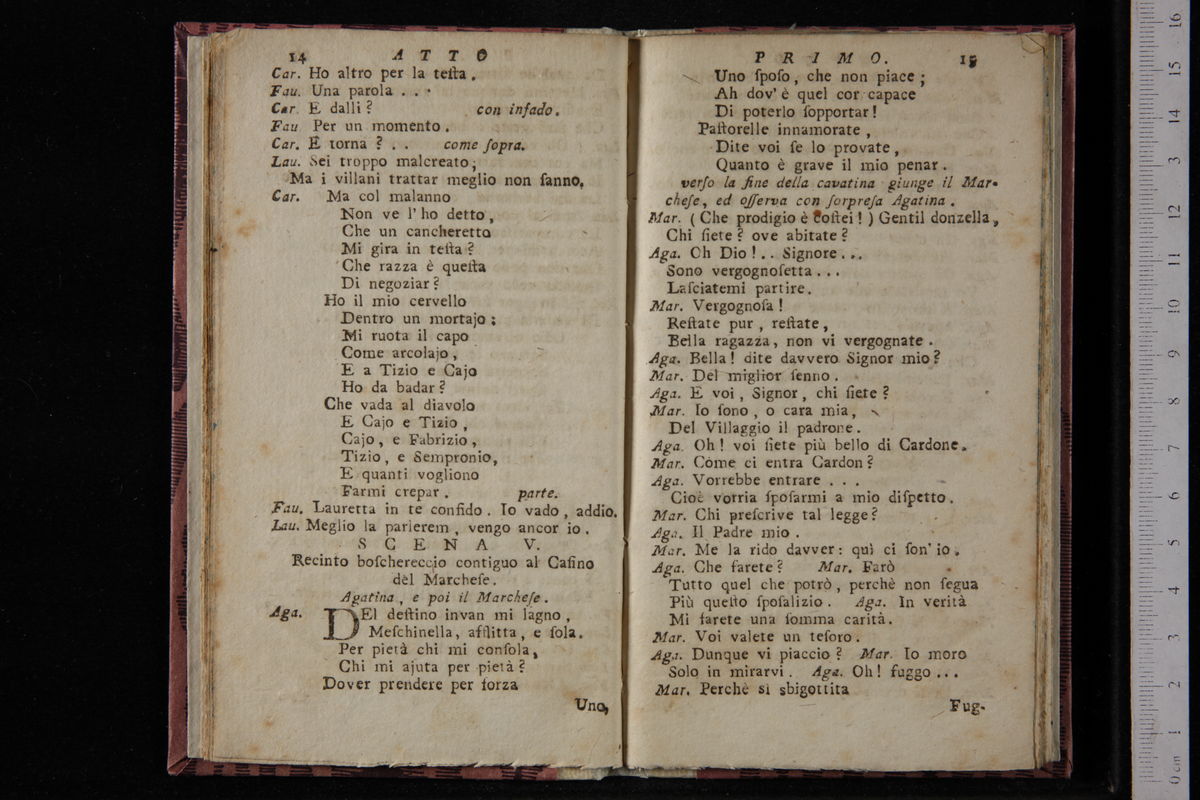 14 ATTO
Car. Ho altro per la teſta.
Fau. Una parola . . .
Car. E dalli? con inſado.
Fau. Per un momento.
Car. E torna? . . come ſopra.
Lau. Sei troppo malcreato;
Ma i villani trattar meglio non ſanno.
Car. Ma col malanno
Non ve l'ho detto,
Che un cancheretto
Mi gira in teſta?
Che razza è queſta
Di negoziar?
Ho il mio cervello
Dentro un mortajo;
Mi ruota il capo
Come arcolajo,
E a Tizio e Cajo
Ho da badar?
Che vada al diavolo
E Cajo e Tizio,
Cajo, e Fabrizio,
Tizio, e Sempronio,
E quanti vogliono
Farmi crepar. parte.
Fau. Lauretta in te confido. Io vado, addio.
Lau. Meglio la parlerem, vengo ancor io.
SCENA V.
Recinto boſchereccio contiguo al Caſino
del Marcheſe.
Agatina, e poi il Marcheſe.
Aga. DEl deſtino invan mi lagno,
Meſchinella, afflitta, e ſola.
Per pietà chi mi conſola,
Chi mi ajuta per pietà?
Dover prendere per forza
Uno,
PRIMO. 15
Uno ſpoſo, che non piace;
Ah dov'è quel cor capace
Di poterlo ſopportar!
Paſtorelle innamorate,
Dite voi ſe lo provate,
Quanto è grave il mio penar.
verſo la fine della cavatina giunge il Mar-
cheſe, ed oſſerva con ſorpreſa Agatina.
Mar. (Che prodigio è coſtei!) Gentil donzella,
Chi ſiete? ove abitate?
Aga. Oh Dio!.. Signore...
Sono vergognoſetta...
Laſciatemi partire.
Mar. Vergognoſa!
Reſtate pur, reſtate,
Bella ragazza, non vi vergognate.
Aga. Bella! dite davvero Signor mio?
Mar. Del miglior ſenno.
Aga. E voi, Signor, chi ſiete?
Mar. Io ſono, o cara mia,
Del Villaggio il padrone.
Aga. Oh! voi ſiete più bello di Cardone.
Mar. Come ci entra Cardon?
Aga. Vorrebbe entrare . . .
Cioè vorria ſpoſarmi a mio diſpetto.
Mar. Chi preſcrive tal legge?
Aga. Il Padre mio.
Mar. Me la rido davver: quì ci ſon' io.
Aga. Che farete? Mar. Farò
Tutto quel che potrò, perchè non ſegua
Più queſto ſpoſalizio. Aga. In verità
Mi farete una ſomma carità.
Mar. Voi valete un teſoro.
Aga. Dunque vi piaccio? Mar. Io moro
Solo in mirarvi. Aga. Oh! fuggo...
Mar. Perchè sì sbigottita
Fug-
0 cm 1 2 3 4 5 6 7 8 9 10 11 12 3 14 15 16